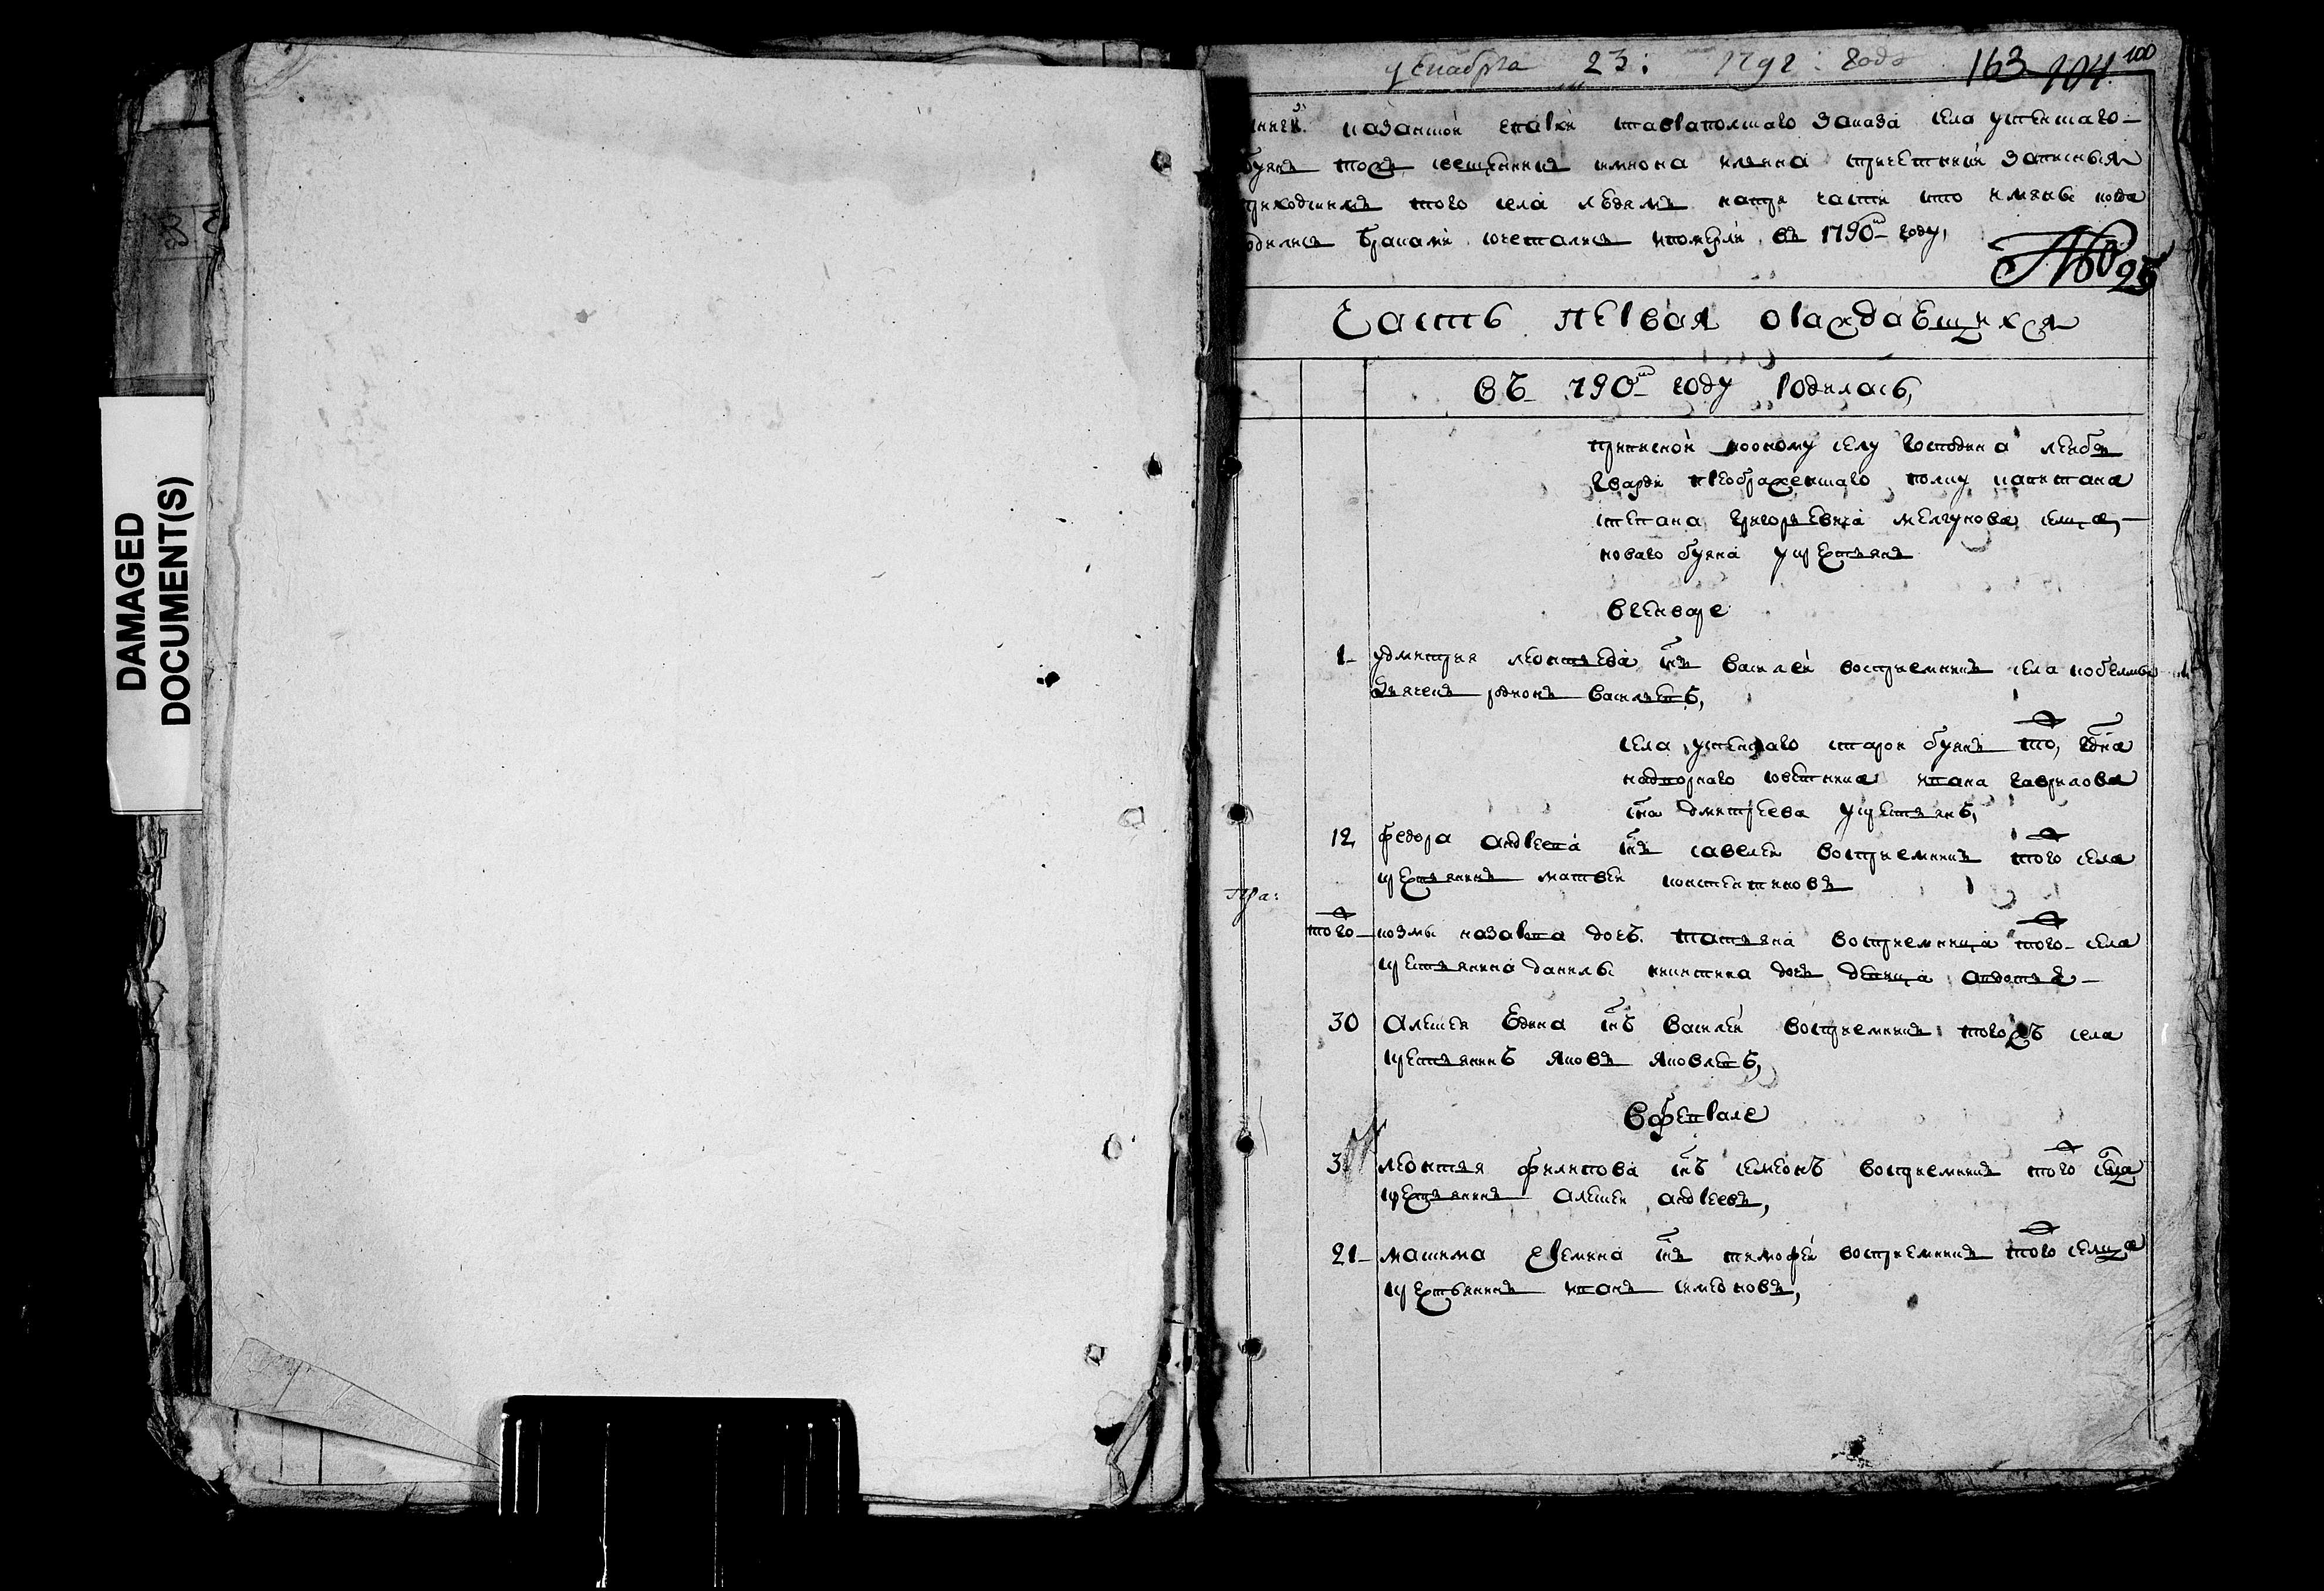 DAMAGED
DOCUMENT(S)
декабря 23: 1791: года 163 104 100
казанской епархии ставропольскаго заказа села успенскаго
буянъ тожъ священникъ имяна причетники записныя
приходскимъ того села людямъ на три части кто имяны когда
родились браками сочетались и померли въ 1790м году,
№ 95
Часть первая о раждаемщихся
въ 790м году родилась,
приписной ко оному селу господина лейбъ
гвардии преображенскаго полку капитана
степана григорьевича мелгунова селца,
новаго буяна у крестьянъ
в генваре
1 у дмитрия леонтьева снъ василей восприемникъ села кобелмы
дьячекъ родионъ васильевъ,
села успенскаго старой буянъ то, гдна
надворнаго советника ивана гаврилова
сна дмитреева у крестьянъ,
12 федора андреева снъ савелей восприемникъ того села
крестьянинъ матвей констентиновъ
Пра:
того козмы назарова дочь татьяна восприемница того села
крестьянина данилы никитина дочь девица авдотья
30 алексея снъ василей восприемникъ тогожъ села
крестьянинъ яковъ яковлевъ,
в феврале
3 леонтья филипова снъ семенъ восприемникъ того селца
крестьянинъ алексей андреевъ,
21 максима еремина снъ тимофей восприемникъ того селца
крестьянинъ иванъ симеоновъ,